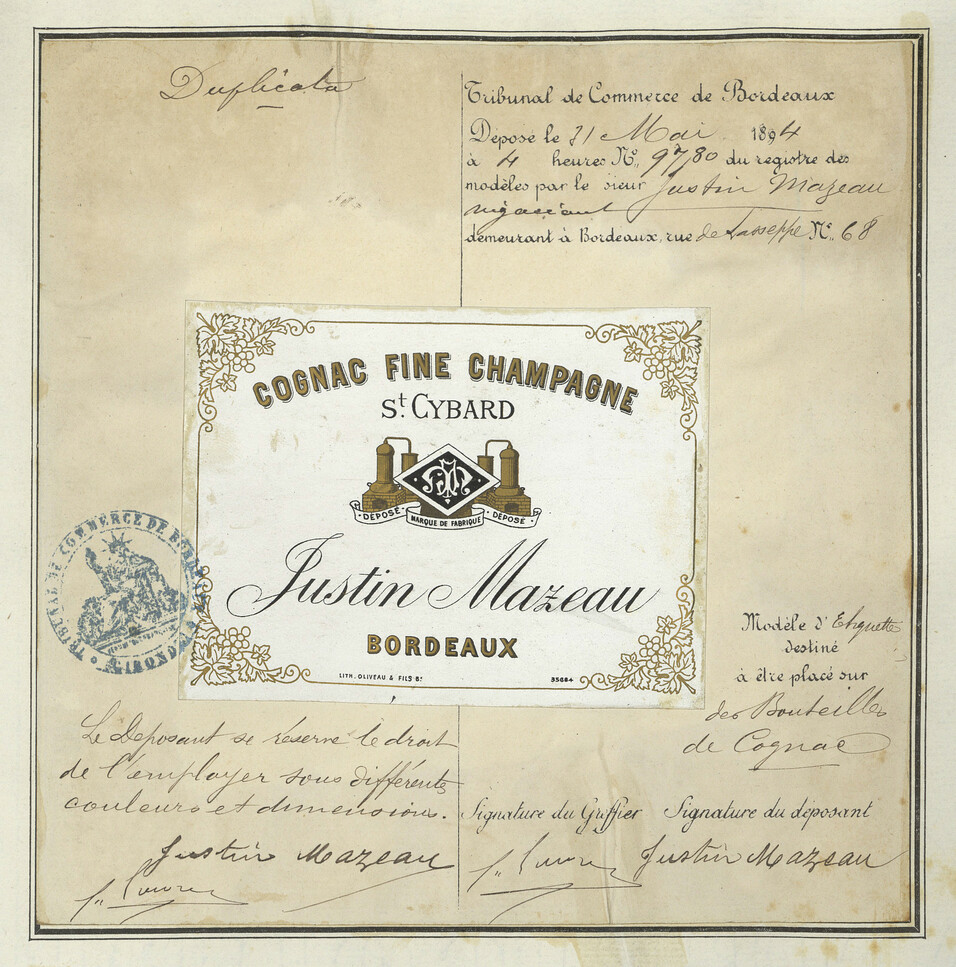 Duplicata
Tribunal de Commerce de Bordeaux
Déposé le 31 Mai 1894
à 4 heures No. 9780 du registre des
modèles par le sieur Justin Mazeau
négociant
demeurant à Bordeaux, rue de No. 68
COGNAC FINE CHAMPAGNE
St CYBARD
DÉPOSÉ MARQUE DE FABRIQUE DÉPOSÉ
Justin Mazeau
BORDEAUX
LITH. OLIVEAU & FILS Bx
35684
TRIBUNAL DE COMMERCE DE BORDEAUX
Modèle d'Etiquette
destiné
à être placé sur
des Bouteilles
de Cognac
Le Déposant se réserve le droit
de l'employer sous différentes
couleurs et dimensions.
Justin Mazeau
Signature du Greffier Signature du déposant
Justin Mazeau